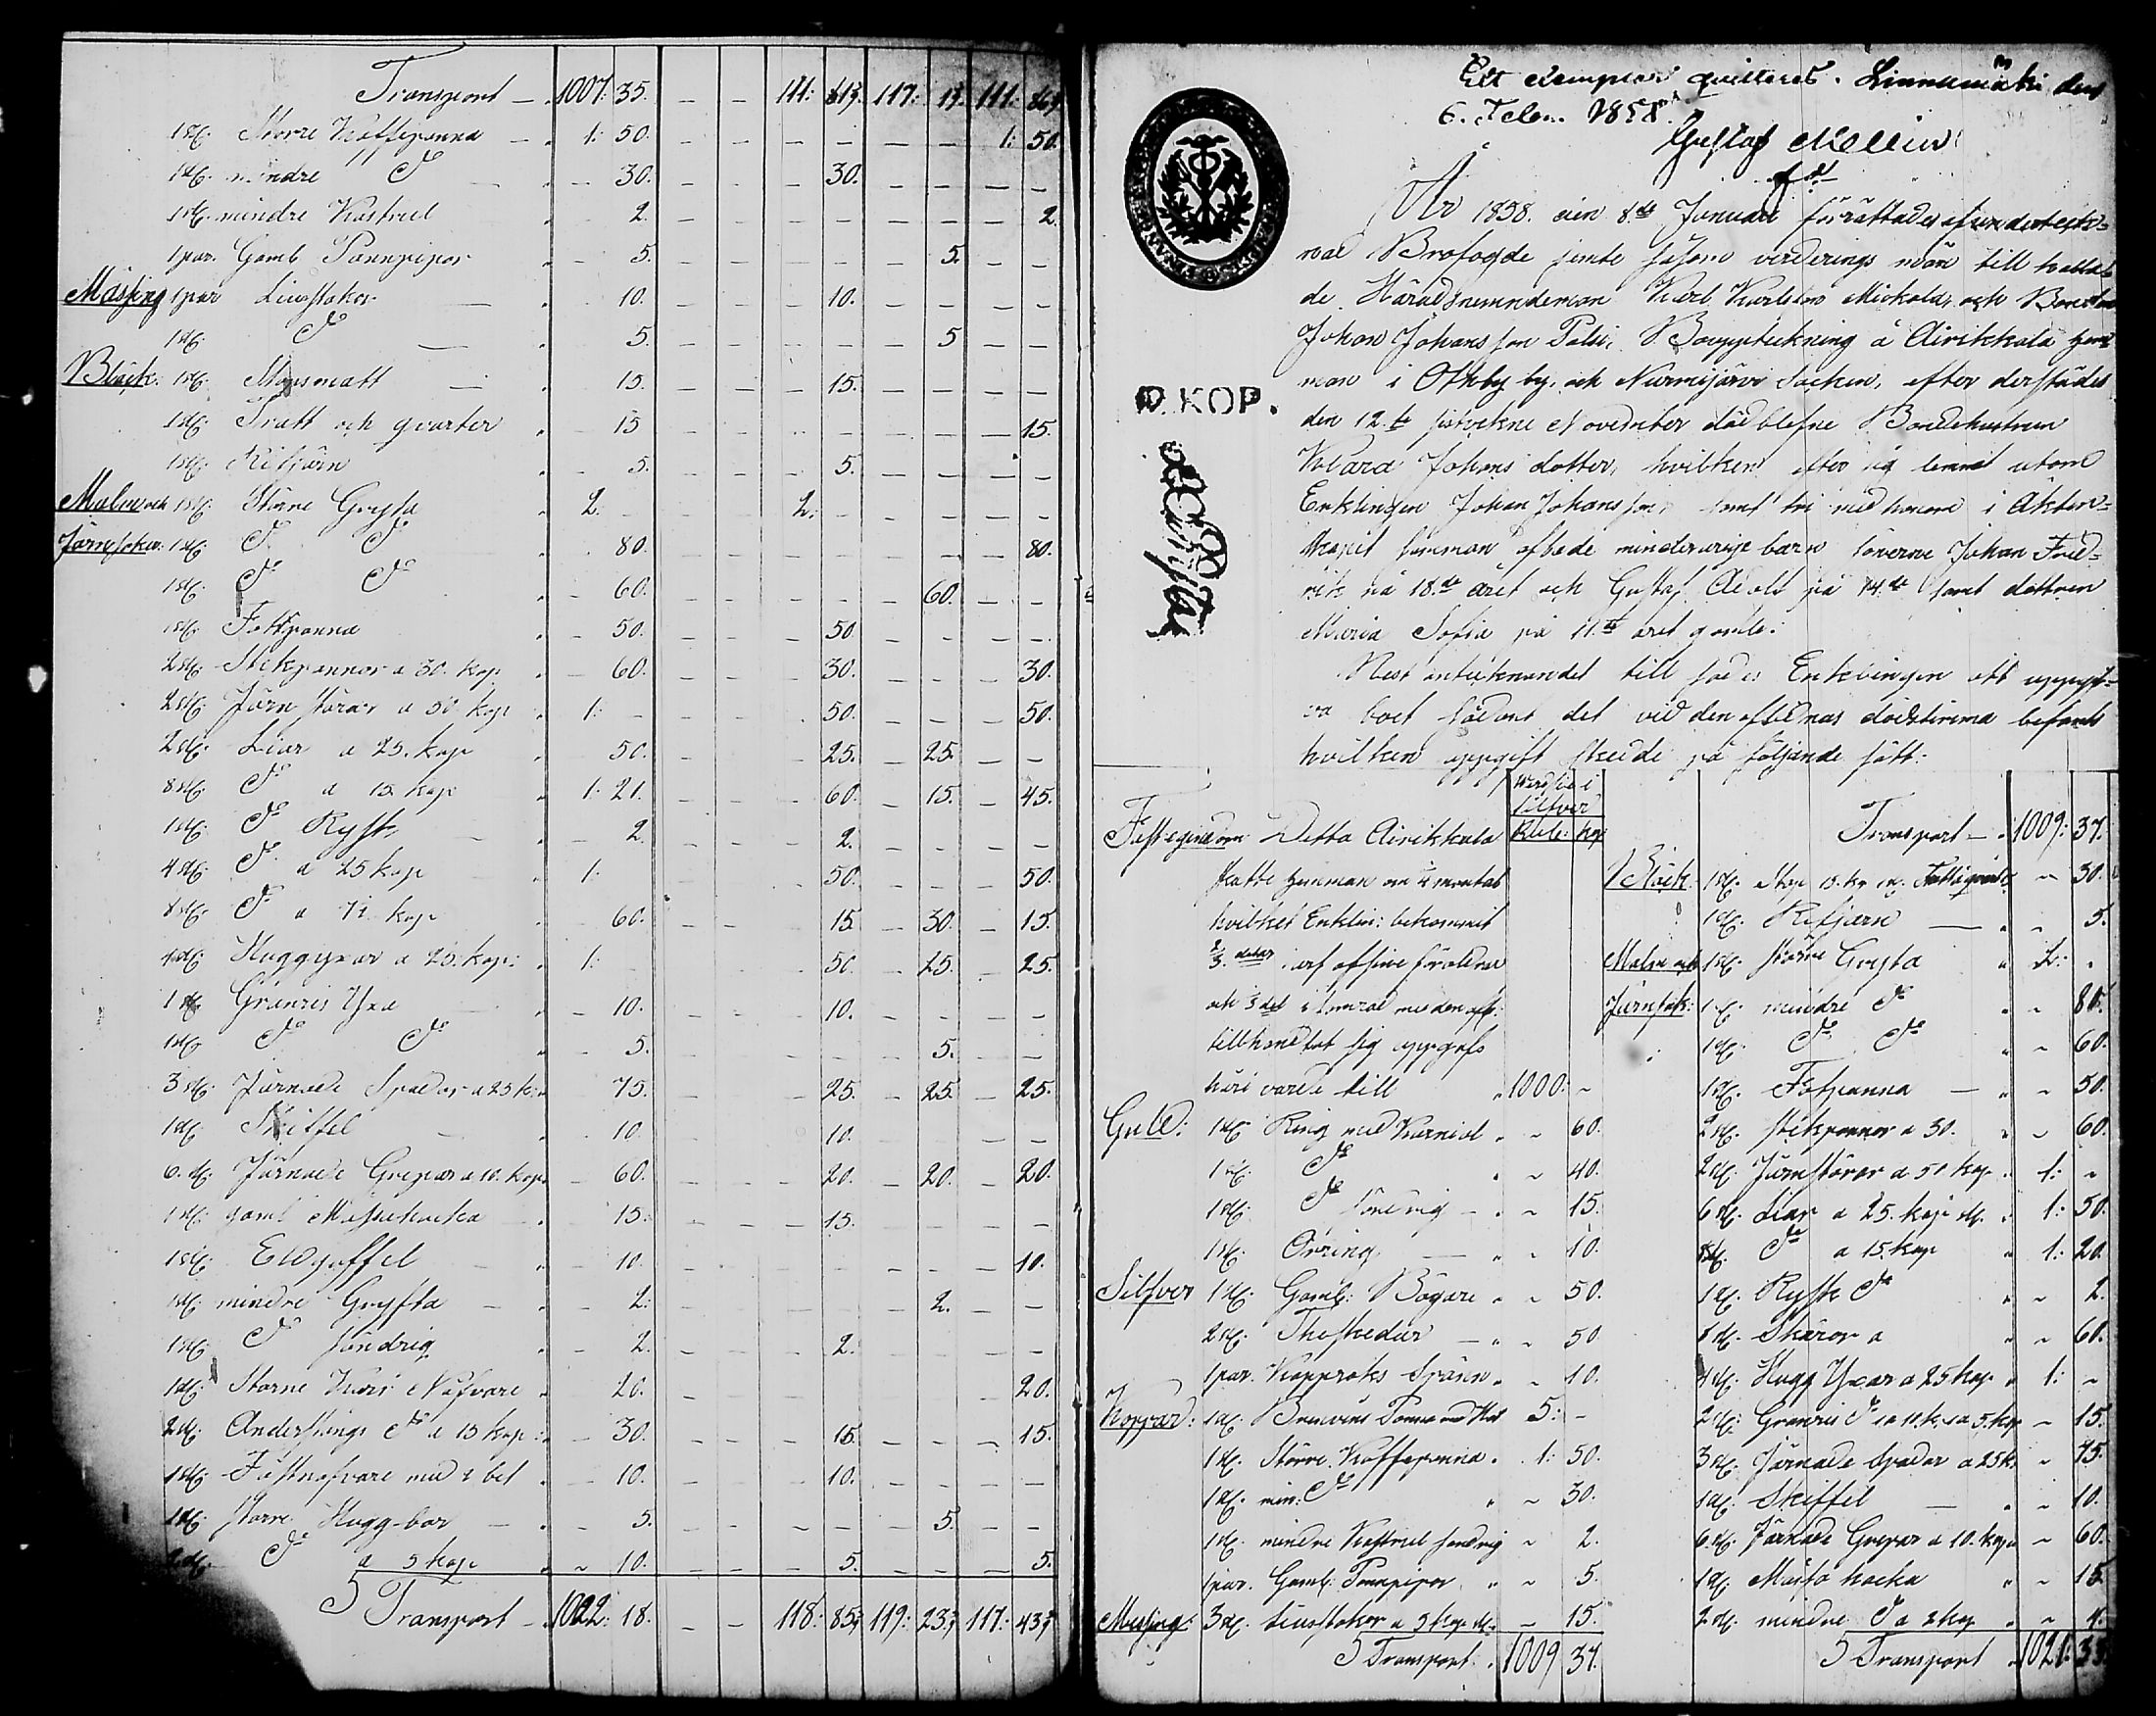 Transport — 1007: 35. — — 111: 61⅔. 117: 13. 111: 86⅓
1 st. Större Kaffepanna — 1: 50. — — — — — — 1: 50.
1 st. mindre Do — 30. — — — 30. — — — —
1 st. mindre Kastrul 2. — — — — — — — 2.
1 par. Gaml Pannpipor 5. — — — — — 5. — —
Mässing 1 par Ljusstakar — 10. — — — 10. — — — —
1 st. Do — 5. — — — — — 5 — —
Bläck. 1 st. Stopsmått — 15. — — — 15. — — — —
1 st. Tratt och qvarter 15 — — — — — — — 15.
1 st. Rifjärn 5. — — — 5. — — — —
Malm och 1 st. Större Gryta 2: — — — 2: — — — — —
Järnsaker. 1 st. Do Do 80. — — — — — — — 80.
1 st. Do Do 60. — — — — — 60. — —
1 st. Fotpanna 50. — — — 50. — — — —
2 st. Stekpannor a 30. kop 60. — — — 30. — — — 30.
2 st. Järn störar a 50 kop 1: — — — — 50. — — — 50.
2 st. Liar a 25. kop 50. — — — 25. — 25. — —
8 st. Do a 15 kop 1: 21. — — — 60. — 15. — 45.
1 st. Do Rysk 2. — — — 2. — — — —
4 st. Do a 25 kop 1: — — — 50. — — — 50.
8 st. Do a 7½ kop 60. — — — 15. — 30. — 15.
4 st. Huggyxar a 25. kop: 1: — — — 50. — 25. — 25.
1 st. Granris Yxa 10. — — — 10. — — — —
1 st. Do Do 5. — — — — — 5. — —
3 st. Järnade Spadar a 25 k: 75. — — — 25. — 25. — 25.
1 st. Skiffel 10. — — — 10. — — — —
6. st. Järnade Grepar a 10. kop. 60. — — — 20. — 20. — 20.
1 st. gaml Måssehacka 15. — — — 15. — — — —
1 st. Eldgaffel 10. — — — — — — — 10.
1 st. mindre Gryta 2: — — — — — 2. — —
1 st. Do söndrig 2. — — — 2. — — — —
1 st. Större Nafvare 20. — — — — — — — 20.
2 st. Do a 15 kop: 30. — — — 15. — — — 15.
1 st. nafvare med 2 bet 10. — — — 10. — — — —
1 st. större Hugg-bor 5. — — — — — 5. — —
2 st. Do a 5 kop 10. — — — 5. — — — 5.
Transport — 1022: 18. — — 118: 85⅔ 119: 23⅓ 117: 43⅓
Ett exemplar qvitteras. Linnamäki den
6. Febr. 1858.
Gustaf Mellin
År 1858. den 8.de Januari förrättades af underteck=
nad Brofogde jemte såsom värderings män till kalla
de Häradsnemndeman Karl Karlsson Mickola, och Bonden
Johan Johansson Palsi, Bouppteckning å Airikkala hem
man i Othby by, och Nurmijärvi Socken, efter derstädes
den 12.te sistvekne November död blefne Bondehustrun
D. KOP.
Johans dotter, hvilken efter sig lemnat utom
Enklingen Johan Johansson, samt tri med honom i Äkten=
skapet sammanaflade minderårige barn sönerne Johan Fred=
rik på 18.de året och Gustaf Adolf på 14.de samt dottren
Maria Sofia på 11.te året gamle.
Näst antecknandet till sades Enklingen att uppgif=
va boet sådant det vid den aflidnas dödstimma befants
hvilken uppgift skedde på följande sätt:
Värdie i
Silfver
Rub: kop
Fastegendom: Detta Airikkala
skatte hemman om ¼ mantal
hvilket Enklin: bekommit
⅔. delar i arf af sine föräldrar
och ⅓ del i
tillhandlat sig uppgafs
häri värde till 1000: ~
Guld: 1 st. Ring med Karniol ~ 60.
1 st. Do ~ 40.
1 st. Do söndrig — ~ 15.
1 st. Örring — ~ 10.
Silfver 1 st. Gaml: Bögare ~ 50.
2 st. Theskedar — ~ 50.
1 par. Kapproks Spänn ~ 10.
Koppar: 1 st. Brenvins Panna med Hat 5: -
1 st. Större Kaffepanna 1: 50.
1 st. min: Do ~ 30.
1 st. mindre Kastrul söndrig ~ 2.
1 par. Gaml: Pannpipor ~ 5.
Messing: 3 st. Ljusstakar a 5 kop st. — 15.
Transport. 1009 37.
Transport — 1009: 37.
Bläck. 1 st. Stop 15. kp 1 st. Tratt ~ 30.
1 st. Rifjärn — ~ 5.
Malm och 1 st. större Gryta 2: .
Järnsak: 1 st. mindre Do ~ 80.
1 st. Do Do ~ 60.
1 st. Fotpanna — ~ 50.
2 st. stekpannor a 30. ~ 60.
2 st. Järnstörar a 50 kop 1: ~
6 st. Liar a 25. kop st. 1: 50.
8 st. Do a 15. kop 1: 20.
1 st. Rysk Do ~ 2.
8 st. Skäror a ~ 60.
4 st. Hugg Yxar a 25 kop 1: ~
2 st. Granris Do 1 a 10. k. 1 a 5. kop ~ 15.
3 st. Järnade Spadar a 25 k. ~ 75.
1 st. Skiffel — ~ 10.
6 st. Järnade Grepar a 10. kop ~ 60.
1 st. Måsså hacka ~ 15
2 st. mindre Do a 2 kop ~ 4.
Transport 1021: 33.